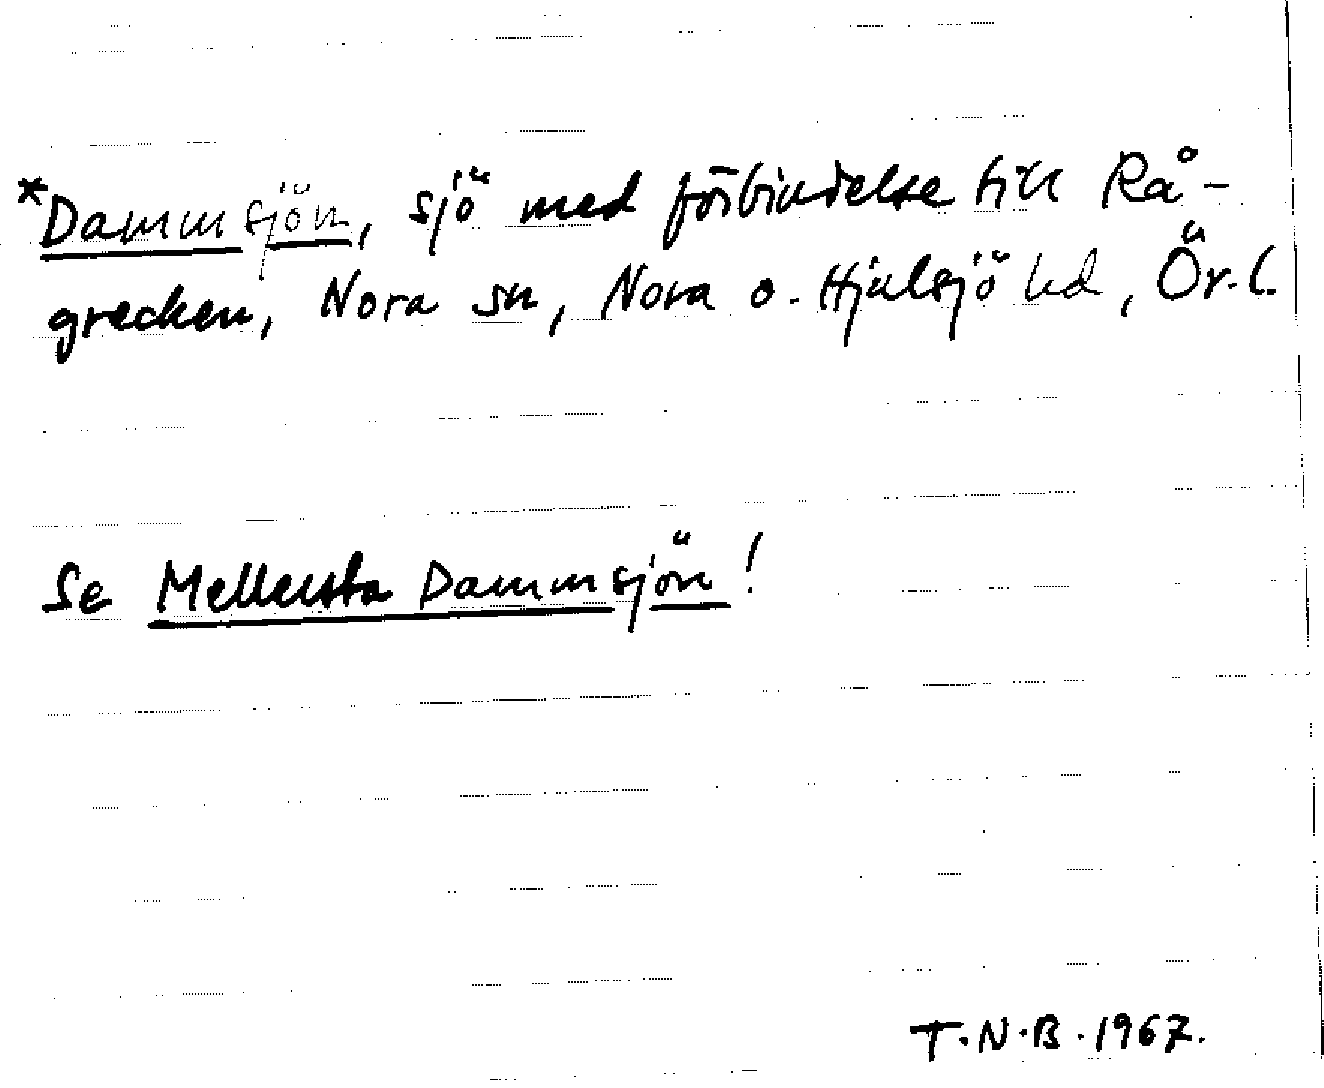 *Dammsjön, sjö med förbindelse till Rå-
grecken, Nora sn, Nora o. Hjulsjö hd, Ör. l.
Se Mellersta Dammsjön!
T.N.B. 1967.